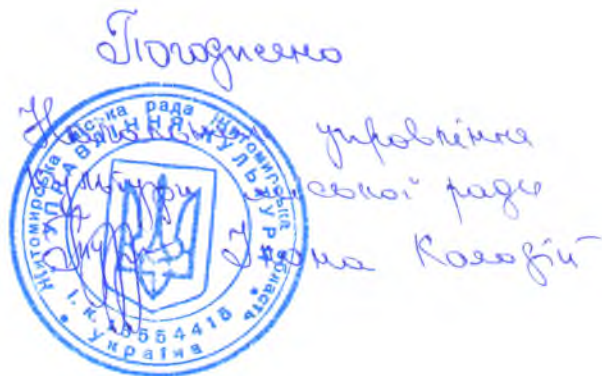 Погоджено
Начальник управління
культури міської ради
Ілона Колодій
Житомирська міська рада Житомирська область
УПРАВЛІННЯ КУЛЬТУРИ
Україна